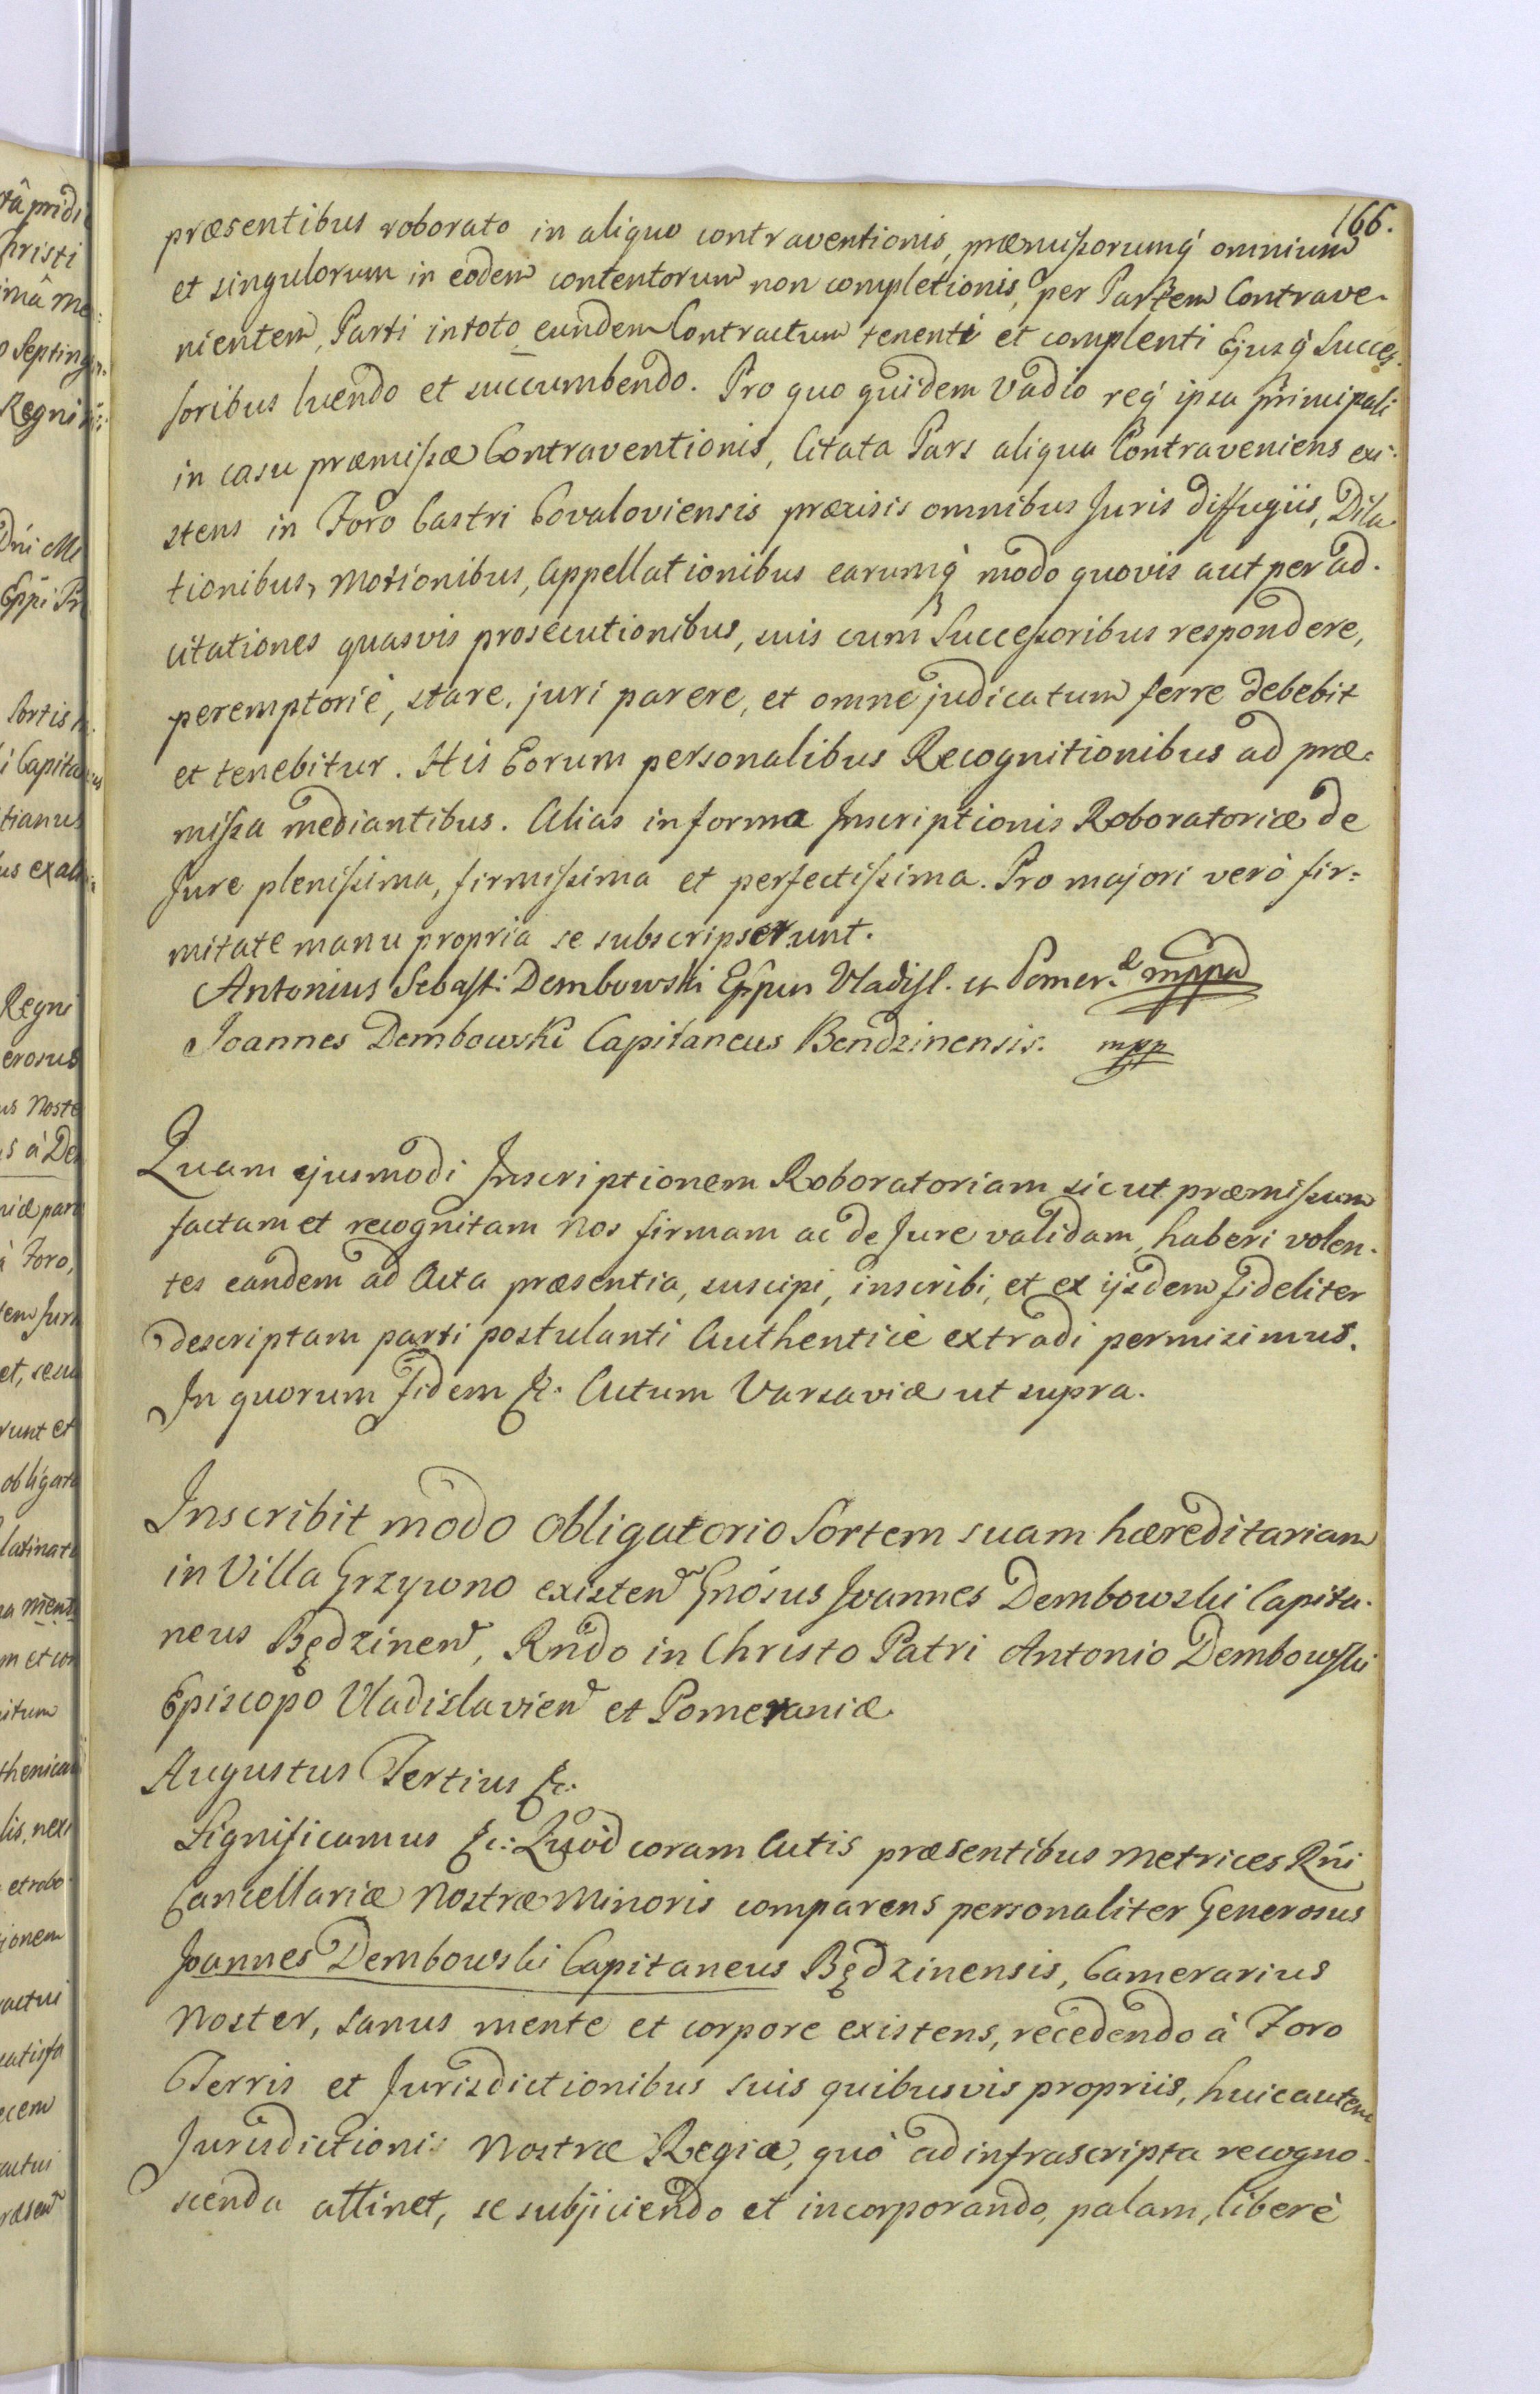 166.
præsentibus roborato in aliquo contraventionis, præmissorumq́ omnium
et singulorum in eodem contentorum non completionis, per Partem Contrave-
nientem, Parti in toto eundem Contractum tenenti et complenti Ejusq́ Succes-
soribus luendo et succumbendo. Pro quo quidem Vadio req́ ipsa principali
in casu præmissæ Contraventionis, Citata Pars aliqua Contraveniens exi-
stens in Foro Castri Covaloviensis præcisis omnibus Juris diffugiis, Dila-
tionibus, Motionibus, Appellationibus earumq́ modo quovis aut per ad-
citationes quasvis prosecutionibus, suis cum Successoribus respondere,
peremptoriè, stare, juri parere, et omne judicatum ferre debebit
et tenebitur. His Eorum personalibus Recognitionibus ad præ-
missa mediantibus. Alias in forma Inscriptionis Roboratoriæ de
Jure plenissima, firmissima et perfectissima. Pro majori verò fir=
mitate manu propria se subscripserunt.
Antonius Sebast: Dembowski Eppus Vladisl. et Pomer. mppa
Joannes Dembowski Capitaneus Bendzinensis. mpp
Quam ejusmodi Inscriptionem Roboratoriam sicut præmissum
factam et recognitam Nos firmam ac de Jure validam, haberi volen-
tes eandem ad Acta præsentia, suscipi, inscribi, et ex ijsdem fideliter
descriptam parti postulanti Authenticè extradi permisimus.
In quorum Fidem &c. Actum Varsaviæ ut supra.
Inscribit modo obligatorio Sortem suam hæreditariam
in Villa Grzywno existen Gnósus Joannes Dembowski Capita-
neus Będzinen, Rndo in Christo Patri Antonio Dembowski
Episcopo Vladislavien et Pomeraniæ
Augustus Tertius &c.
Significamus &c: Quod coram Actis præsentibus Metrices Rńi
Cancellariæ Nostræ Minoris comparens personaliter Generosus
Joannes Dembowski Capitaneus Będzinensis, Camerarius
Noster, sanus mente et corpore existens, recedendo à Foro
Terris et Jurisdictionibus suis quibusvis propriis, huic autem
Jurisdictioni Nostræ Regiæ, quò ad infrascripta recogno-
scenda attinet, se subjiciendo et incorporando, palam, liberè